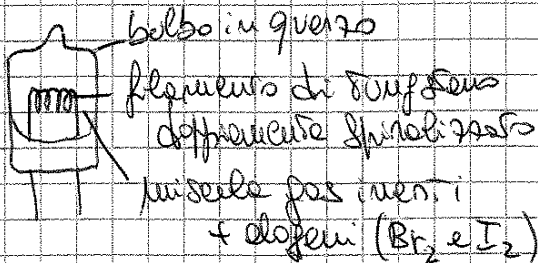 bulbo in quarzo
filamento di tungsteno
doppiamente spiralizzato
miscela gas inerti
+ alogeni (Br₂ e I₂)